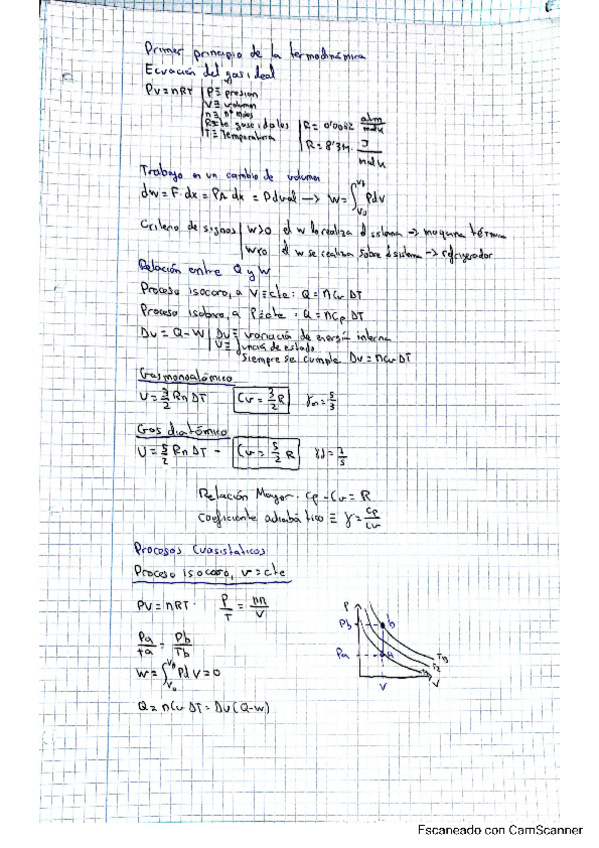 Primer principio de la termodinámica
Ecuación del gas ideal
PV=nRT | P≡ presión
V≡ volumen
n≡ nº moles
R≡ cte gases ideales | R= 0'0082 atm/molK
T≡ Temperatura | R= 8'314 J/molK
Trabajo en un cambio de volumen
dW = F·dx = PA dx = PdVol → W = ∫ PdV
Criterio de signos | W>0 el W lo realiza el sistema → maquina térmica
W<0 el W se realiza sobre el sistema → refrigerador
Relación entre Q y W
Proceso isocoro, a V≡cte: Q = nCv DT
Proceso isobaro, a P≡cte: Q = nCp DT
DU = Q-W | DU≡ variación de energía interna
U≡ función de estado
Siempre se cumple DU = nCv DT
Gas monoatómico
U = 3/2 Rn DT Cv = 3/2 R γm = 5/3
Gas diatómico
U = 5/2 Rn DT - Cv = 5/2 R γd = 7/5
Relación Mayer: Cp - Cv = R
Coeficiente adiabático ≡ γ = Cp/Cv
Procesos Cuasistaticos
Proceso isocoro, v = cte
PV = nRT· P/T = nR/V
Pa/Ta = Pb/Tb
W = ∫ PdV = 0
Q = nCv DT = DU (Q-W)
P
Pb b
Pa a
T3
T2
T1
V V
Escaneado con CamScanner